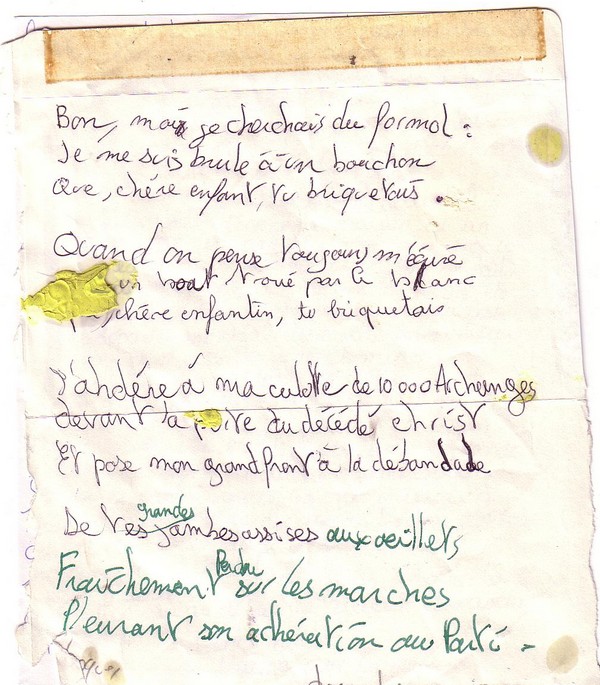 Bon, mais je cherchais du formol :
Je me suis brulé à un bouchon
Que, chère enfant, tu briquetais.
Quand on pense toujours
un bout troué par le blanc
chère enfantin, tu briquetais
J'ahdére á ma culotte de 10 000 Archanges
devant la du décédé christ
Et pose mon grand front à la débandade
De tes grandes jambes assises aux oeillets
Fraîchement Perdu sur les marches
Pleurant son adhération au Parti.